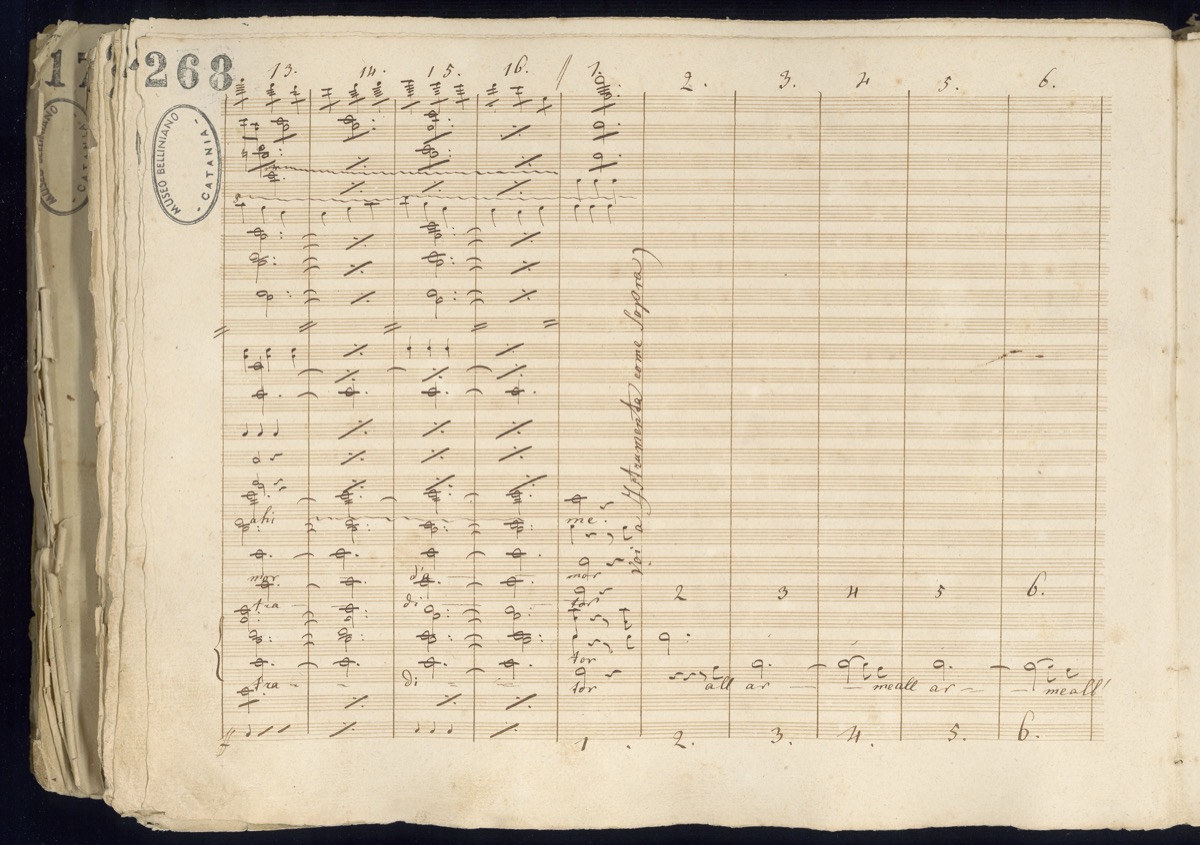 268
17
MUSEO BELLINIANO
- CATANIA -
13. 14. 15. 16. 1. 2. 3. 4 5. 6.
come Sopra)
ahi me.
mor d'a mor
2 3 4 5 6.
tra di tor
tor
all ar meall ar meall'
tra di tor
ff
1. 2. 3. 4. 5. 6.